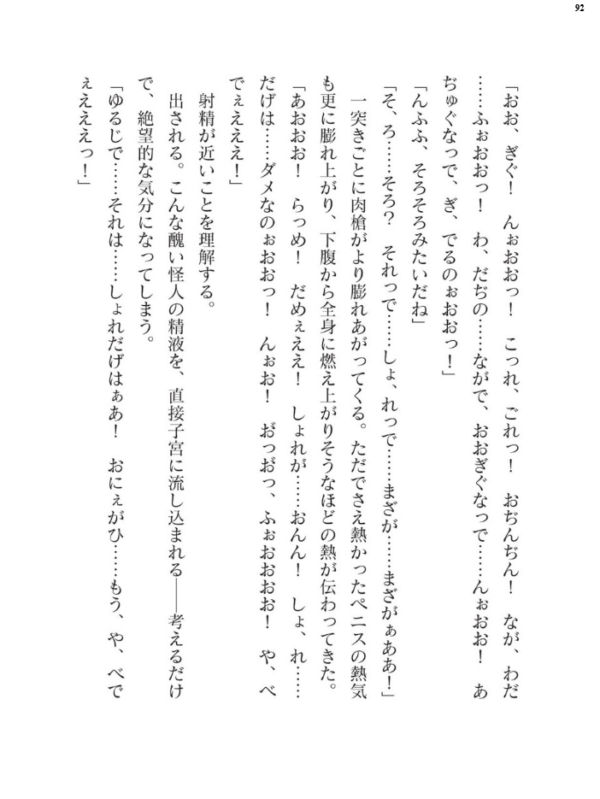 92
「おお、ぎぐ！　んぉおおっ！　こっれ、ごれっ！　おぢんぢん！　なが、わだ
……ふぉおおっ！　わ、だぢの……ながで、おおぎぐなっで……んぉおお！　あ
ぢゅぐなっで、ぎ、でるのぉおおっ！」
「んふふ、そろそろみたいだね」
「そ、ろ……そろ？　それっで……しょ、れっで……まざが……まざがぁああ！」
　一突きごとに肉槍がより膨れあがってくる。ただでさえ熱かったペニスの熱気
も更に膨れ上がり、下腹から全身に燃え上がりそうなほどの熱が伝わってきた。
「あおおお！　らっめ！　だめぇええ！　しょれが……おんん！　しょ、れ……
だげは……ダメなのぉおおっ！　んぉお！　お゙っお゙っ、ふぉおおおお！　や、べ
でぇえええ！」
　射精が近いことを理解する。
　出される。こんな醜い怪人の精液を、直接子宮に流し込まれる――考えるだけ
で、絶望的な気分になってしまう。
「ゆるじで……それは……しょれだげはぁあ！　おにぇがひ……もう、や、べで
ぇえええっ！」